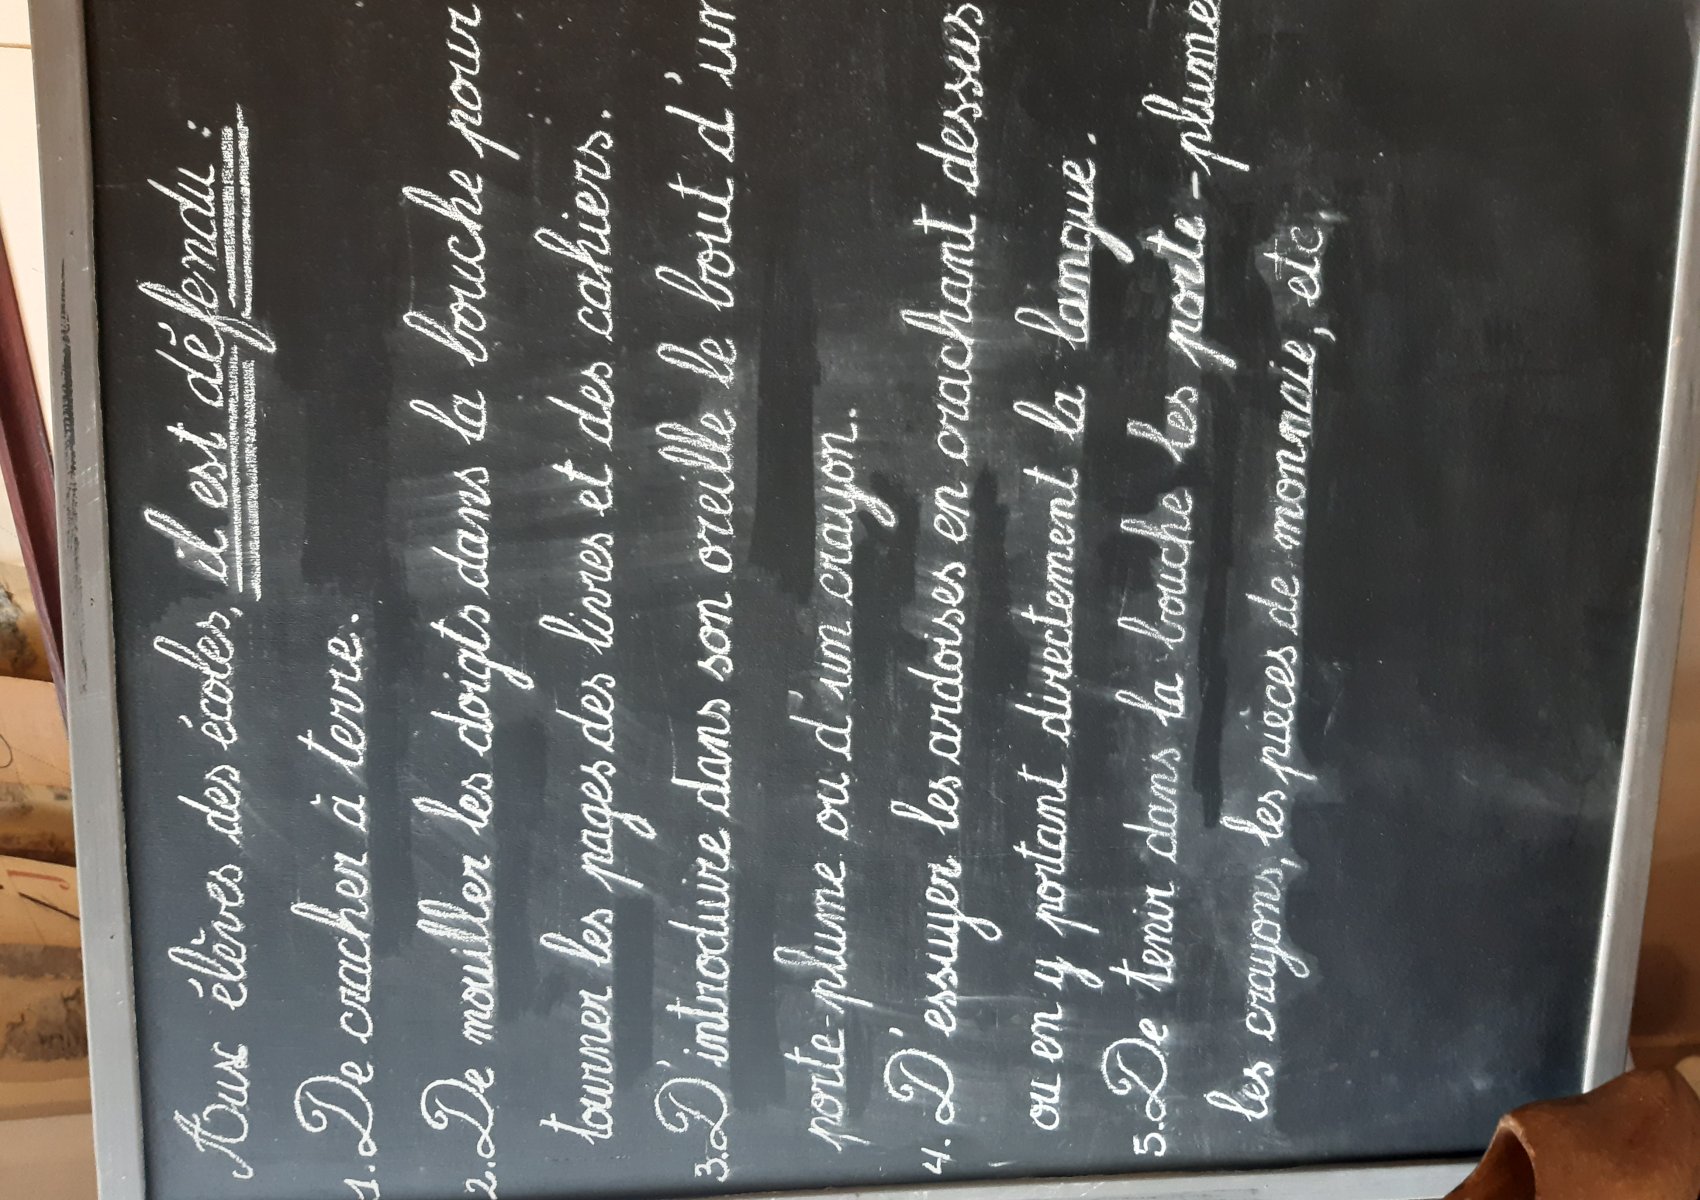 Aux élèves des écoles, il est défendu :
1. De cracher à terre.
2. De mouiller les doigts dans la bouche pour
tourner les pages des livres et des cahiers.
3. D'introduire dans son oreille le bout d'un
porte-plume ou d'un crayon.
4. D'essuyer les ardoises en crachant dessus
ou en y portant directement la langue.
5. De tenir dans la bouche les porte-plume
les crayons, les pièces de monnaie, etc,